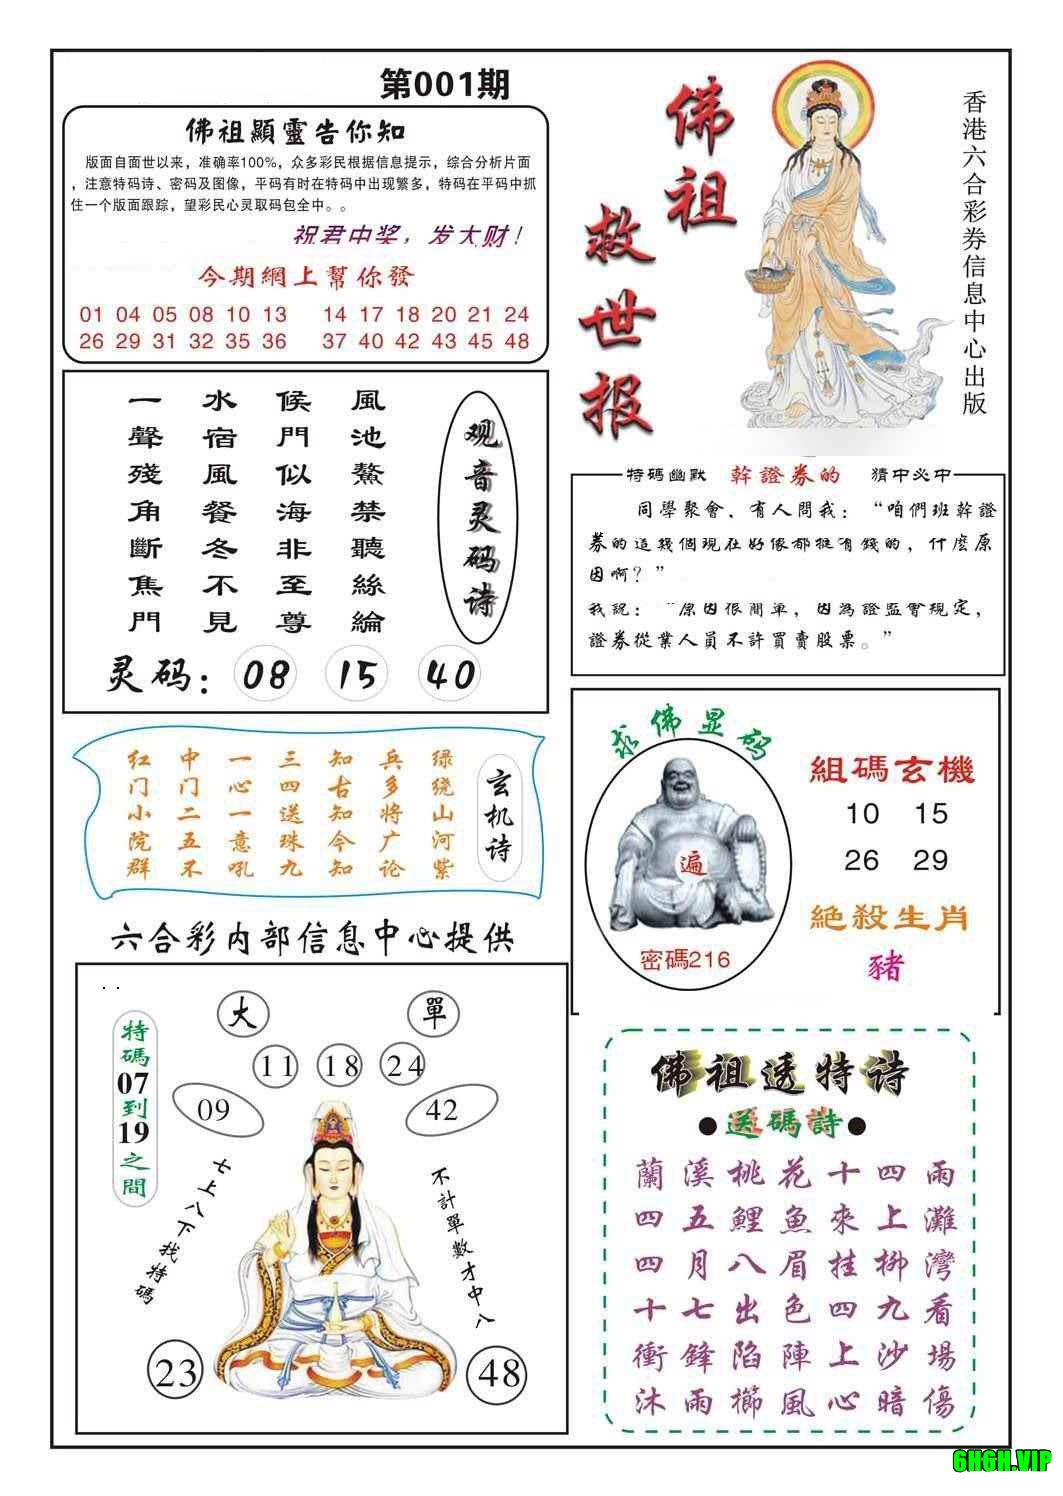 第001期
佛祖顯靈告你知
版面自面世以来，准确率100%，众多彩民根据信息提示，综合分析片面
，注意特码诗、密码及图像，平码有时在特码中出现繁多，特码在平码中抓
住一个版面跟踪，望彩民心灵取码包全中。。
祝君中奖，发大财！
今期網上幫你發
01 04 05 08 10 13 14 17 18 20 21 24
26 29 31 32 35 36 37 40 42 43 45 48
佛祖
救世报
香港六合彩券信息中心出版
观音灵码诗
風池鰲禁聽絲綸
侯門似海非至尊
水宿風餐冬不見
一聲殘角斷焦門
灵码：08 15 40
特碼幽默 幹證券的 猜中必中
同學聚會，有人問我：“咱們班幹證
券的這幾個現在好像都挺有錢的，什麼原
因啊？”
我説：“原因很簡單，因為證監會規定，
證券從業人員不許買賣股票。”
玄机诗
绿绕山河紫
兵多将广论
知古知今知
三四送珠九
一心一意吼
中门二五不
红门小院群
求佛显码
遍
密碼216
組碼玄機
10 15
26 29
絕殺生肖
豬
六合彩内部信息中心提供
特碼07到19之間
大 單
11 18 24
09 42
七上八下找特碼
不計單數才中八
23 48
佛祖透特诗
●送碼詩●
蘭溪桃花十四雨
四五鯉魚來上灘
四月八眉挂柳灣
十七出色四九看
衝鋒陷陣上沙場
沐雨櫛風心暗傷
6H6H.VIP